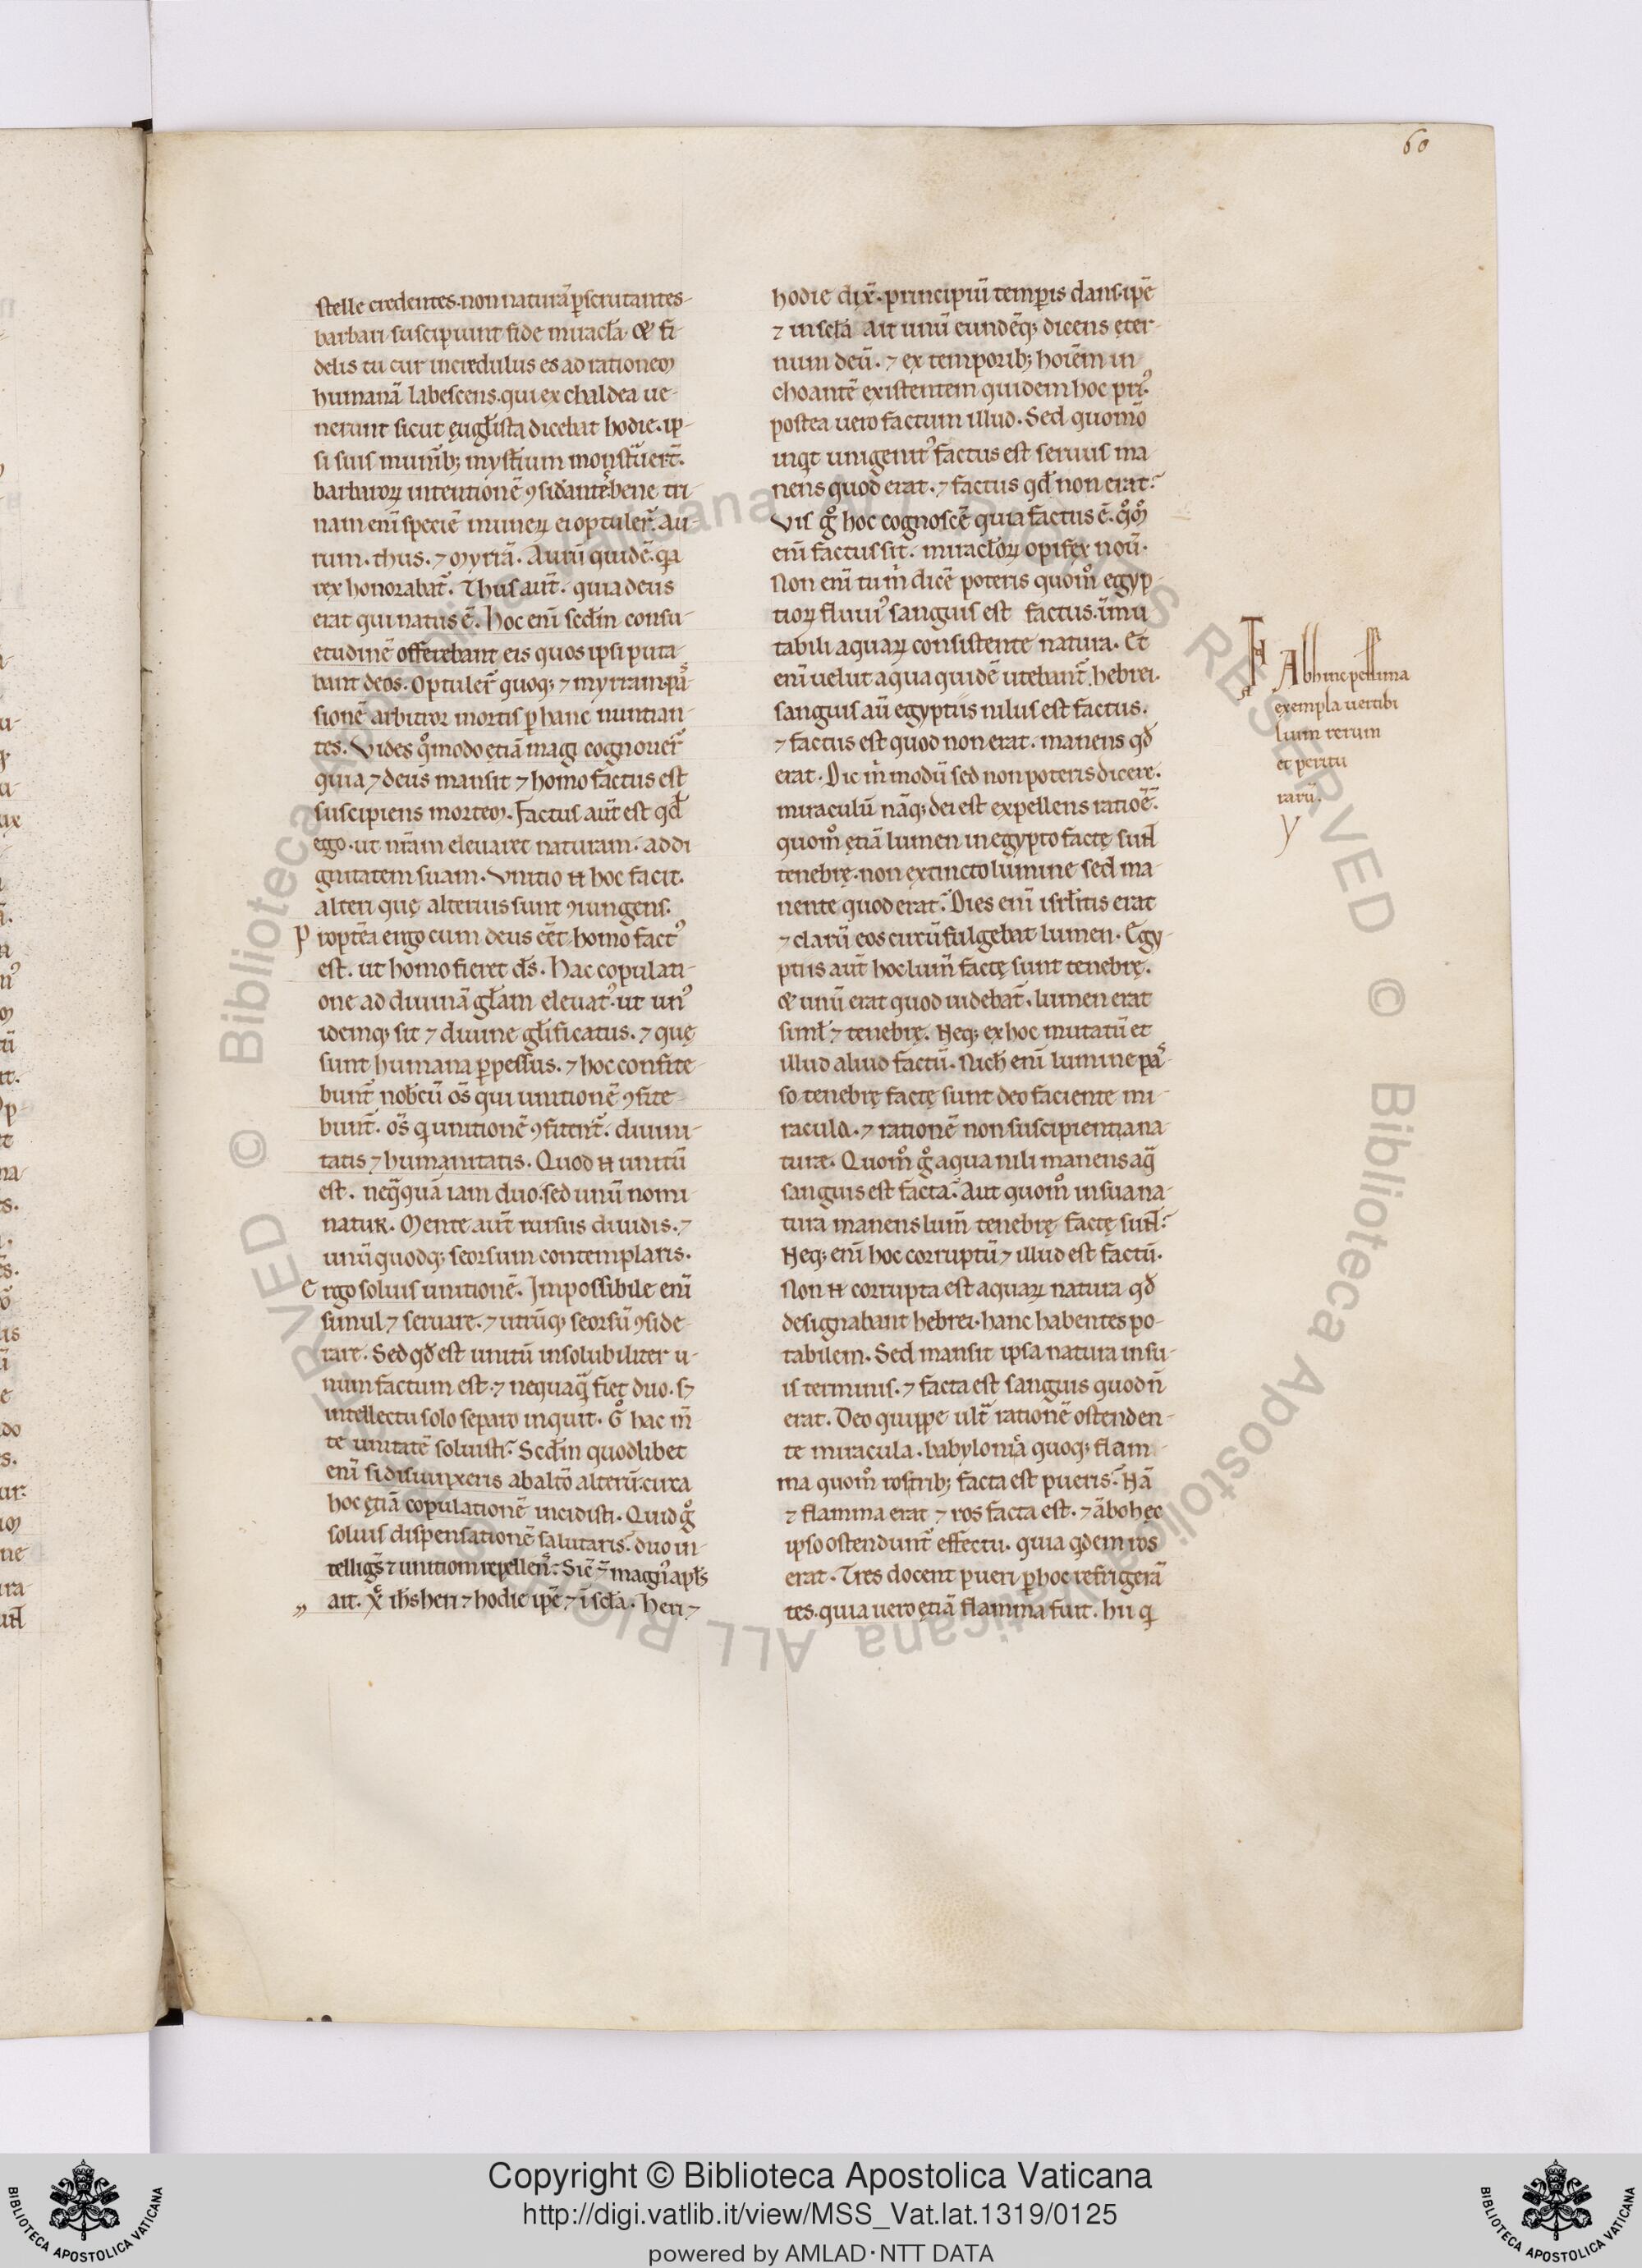 60
stelle credentes. non naturā ꝑscrutantes
barbari suscipiunt fide miracl̄a. & fi-
delis tu cur incredulus es ad rationem
humanā labescens. qui ex chaldea ue-
nerunt sicut ęug̅lista dicebat hodie. ip-
si suis munīb; mysterium monstuerū̄t.
barbaroꝝ intentionē ꝯsid̄ante bene tri-
nam enī speciē muneꝝ ei optuleř. Au-
rum. thus. ⁊ myrrā. Aurū quidē. q̄a
rex honorabat᷑. Thus aūt. quia deus
erat qui natus ē. Hoc enī scd̄m consu-
etudinē offerebant eis quos ipsi puta-
bant deos. Optuleř quoq; ⁊ myrram. pas-
sionē arbitror mortis ꝑ hanc nuntian-
tes. Vides q̊modo ętiā magi cognoueř
quia ⁊ deus mansit ⁊ homo factus est
suscipiens mortem. Factus aūt est qd̄
ego. ut nr̄am eleuaret naturam. ad di-
gnitatem suam. Vnitio n̄ hoc facit.
alteri quę alterius sunt ꝯiungens.
Propterea ergo cum deus eēt homo factꝰ
est. ut homo fieret d̄s. Hac copulati-
one ad diuinā gl̄am eleuatꝰ. ut unꝰ
idemq; sit ⁊ diuine gl̄ificatus. ⁊ quę
sunt humana ꝑpessus. ⁊ hoc confite-
bunt᷑ nob̄cū om̄s qui unitionē ꝯfite-
bunt᷑. om̄s q unitionē ꝯfitent᷑. diuini-
tatis ⁊ humanitatis. Quod n̄ unitū
est. neq̄quā iam duo. sed unū nomi-
natur. Mente aūt rursus diuidis. ⁊
unūquodq; seorsum contemplaris.
Ergo soluis unitionē. Impossibile enī
simul ⁊ seruare. ⁊ utrūq; seorsū ꝯside-
rare. Sed qd̄ est unitū insolubiliter u-
num factum est. ⁊ nequaq̄ fiet duo. s;
intellectu solo separo inquit. G̊ hac m̄-
te unitatē soluisti. Scd̄m quodlibet
enī si disiunxeris ab altō alterū. circa
hoc ętiā copulationē incidisti. Quid g̊
soluis dispensationē salutaris. duo in-
telligēs ⁊ unitiom̄ repellens. Sic ⁊ magnꝰ apl̄s
ait. xp̄c ih̄s heri ⁊ hodie ip̄e ⁊ ī scl̄a. Heri ⁊
hodie dix̄. principiū temꝑis dans. ip̄e
⁊ in scl̄a. Ait unū eundēq; dicens ęter-
num deū. ⁊ ex temporib; hoīem in-
choantē existentem quidem hoc priꝰ.
postea uero factum illud. Sed quomo
inqt unigenitꝰ factus est seruus ma-
nens quod erat. ⁊ factus qd̄ non erat.
Vis g̊ hoc cognoscē quia factus ē. q̊m̊
enī factus sit. miracl̄oꝝ opifex noū.
Non enī tu m̄ dicē poteris quom̊ egyp-
tioꝝ fluuiꝰ sanguis est factus. īmu-
tabili aquaꝝ consistente natura. Et
enī uelut aqua quidē utebant᷑ hebrei.
sanguis aū egyptiis nilus est factus.
⁊ factus est quod non erat. manens qd̄
erat. Dic m̄ modū sed non poteris dicere.
miraculū nāq; dei est expellens ratioē.
quom̊ ętiā lumen in egypto factę sunt
tenebrę. non extincto lumine sed ma-
nente quod erat. Dies enī isrl̄itis erat
⁊ clarū eos circūfulgebat lumen. Egy-
ptiis aūt hoc lum̄ factę sunt tenebrę.
& unū erat quod uidebat᷑. lumen erat
siml̄ ⁊ tenebrę. Neq; ex hoc mutatū et
illud aliud factū. Nich̄ enī lumine pas-
so tenebrę factę sunt deo faciente mi-
racula. ⁊ rationē non suscipientia na-
turæ. Quom̊ g̊ aqua nili manens aq̄
sanguis est facta. Aut quom̊ in sua na-
tura manens lum̄ tenebrę factę sunt.
Neq; enī hoc corruptū ⁊ illud est factū.
Non n̄ corrupta est aquaꝝ natura qd̄
designabant hebrei. hanc habentes po-
tabilem. Sed mansit ipsa natura in su-
is terminis. ⁊ facta est sanguis quod n̄
erat. Deo quippe ult̄ rationē ostenden-
te miracula. babylonia quoq; flam-
ma quom̊ ros trib; facta est pueris. Nā
⁊ flamma erat ⁊ ros facta est. ⁊ ābo hęc
ipso ostendunt᷑ effectu. quia qdem ros
erat. Tres docent pueri ꝑ hoc refrigerā-
tes. quia uero ętiā flamma fuit. hii q
Ab hinc pessima
exempla uertibi
lium rerum
et peritu
rarū.
Copyright © Biblioteca Apostolica Vaticana
http://digi.vatlib.it/view/MSS_Vat.lat.1319/0125
powered by AMLAD·NTT DATA
BIBLIOTECA APOSTOLICA VATICANA
BIBLIOTECA APOSTOLICA VATICANA